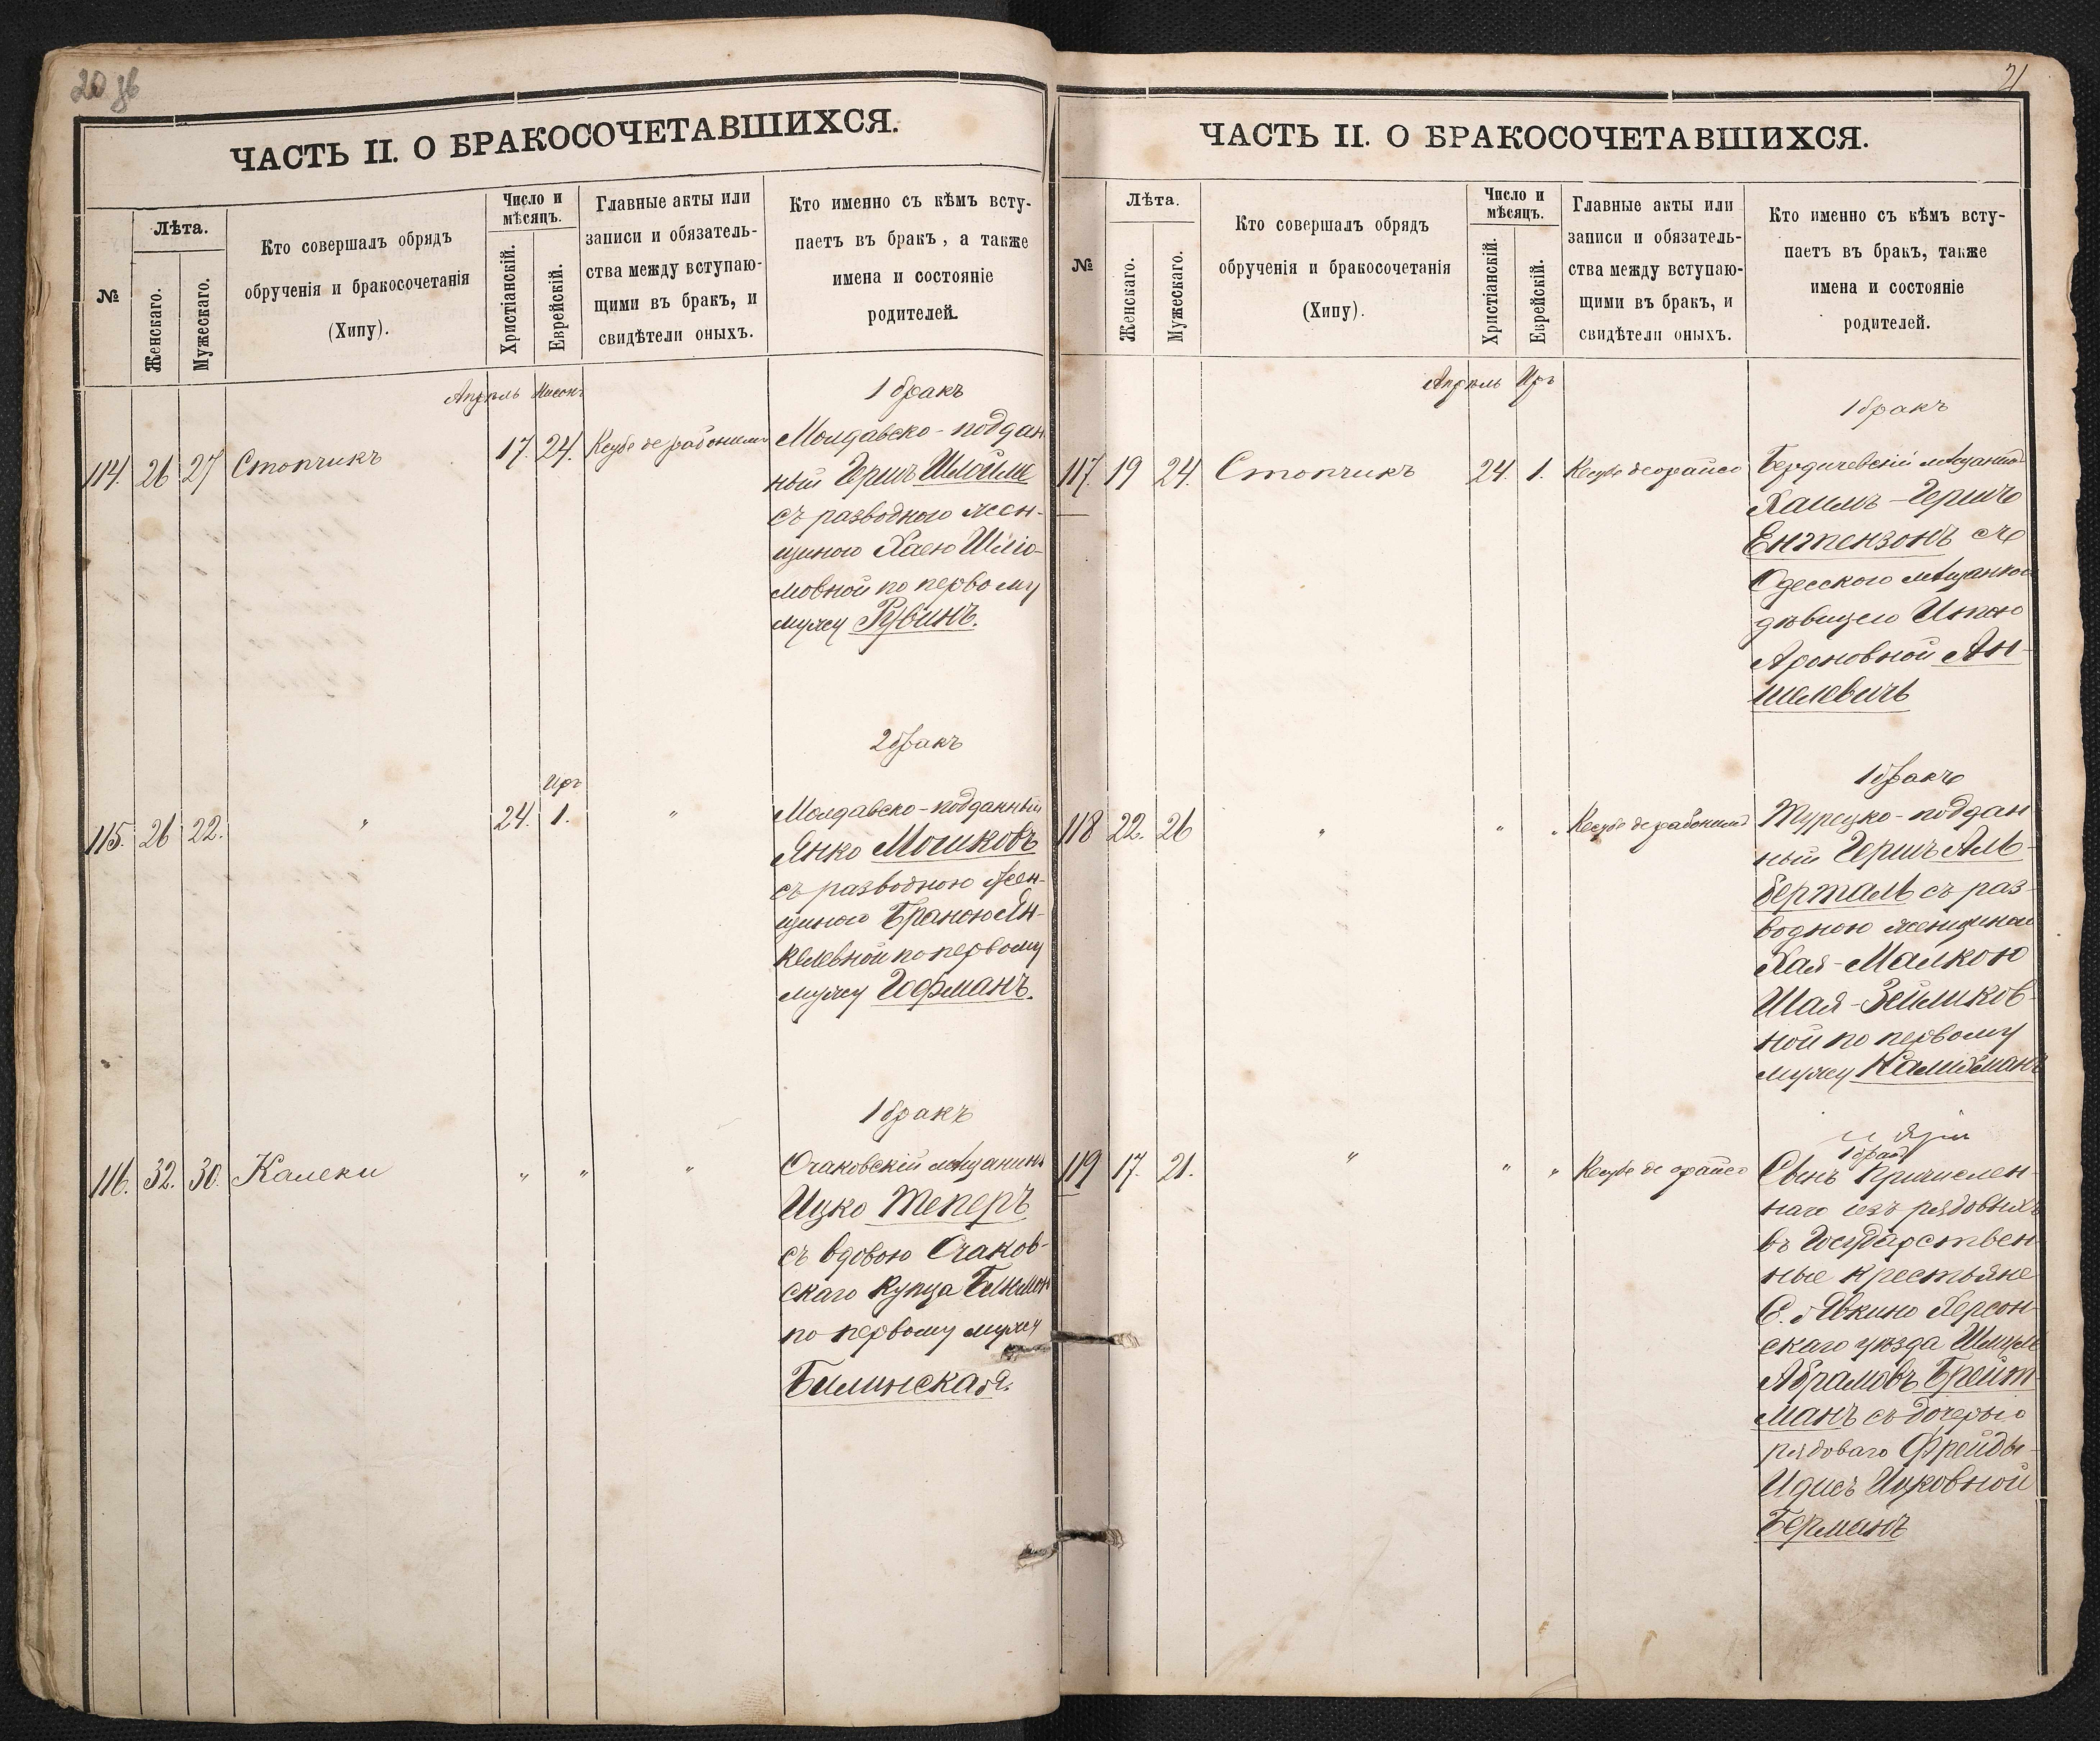 20 зв
ЧАСТЬ II. О БРАКОСОЧЕТАВШИХСЯ.
№
Лѣта.
Женскаго.
Мужескаго.
Кто совершалъ обрядъ
обрученія и бракосочетанія
(Хипу).
Число и
мѣсяцъ.
Христіанскій.
Еврейскій.
Главные акты или
записи и обязатель-
ства между вступаю-
щими въ бракъ, и
свидѣтели оныхъ.
Кто именно съ кѣмъ всту-
паетъ въ бракъ, а также
имена и состояніе
родителей.
Апрѣль Нисонъ
1 бракъ
114. 26 27 Стопчикъ 17. 24. Ксубе де рабонимъ Молдавско-поддан
ный Гершъ Шлойме
съ разводною жен-
щиною Хаею Шлiо-
мовной по первому
мужу Рубинъ.
2 бракъ
Иръ
115. 26 22. " 24. 1. " Молдавско-подданный
Янко Мошковъ
съ разводною жен-
щиною Браною Ян-
келевной по первому
мужу Гофманъ.
1 бракъ
116. 32. 30. Калеки " " " Очаковскій мѣщанинъ
Ицко Теперъ
съ вдовою Очаков-
скаго купца
по первому мужу
Билинская.
21
ЧАСТЬ II. О БРАКОСОЧЕТАВШИХСЯ.
№
Лѣта.
Женскаго.
Мужескаго.
Кто совершалъ обрядъ
обрученія и бракосочетанія
(Хипу).
Число и
мѣсяцъ.
Христіанскій.
Еврейскій.
Главные акты или
записи и обязатель-
ства между вступаю-
щими въ бракъ, и
свидѣтели оныхъ.
Кто именно съ кѣмъ всту-
паетъ въ бракъ, также
имена и состояніе
родителей.
Апрѣль Иръ
1 бракъ
117. 19 24. Стопчикъ 24. 1. Ксубе деорайсо Бердичевскій мѣщанинъ
Хаимъ-Гершъ
Ентензонъ съ
Одесскою мѣщанкою
дѣвицею
Ароновной Ан-
шелевичъ
1 бракъ
118 22. 26 " " " Ксубе де рабонимъ Турецко-поддан
ный Гершъ Аль-
берталь съ раз-
водною женщиною
Хая-Малкою
Шая-Зейликов-
ной по первому
мужу Калихманъ
1 бракъ
119 17. 21. " " " Ксубе де орайсо Сынъ Причислен-
наго изъ рядовыхъ
въ Государствен-
ные крестьяне
С. Явкино Херсон-
скаго уѣзда Шмуль
Абрамовъ Брейт
манъ съ дочерью
рядоваго Фрейды-
Идисъ Ицковной
Берманъ